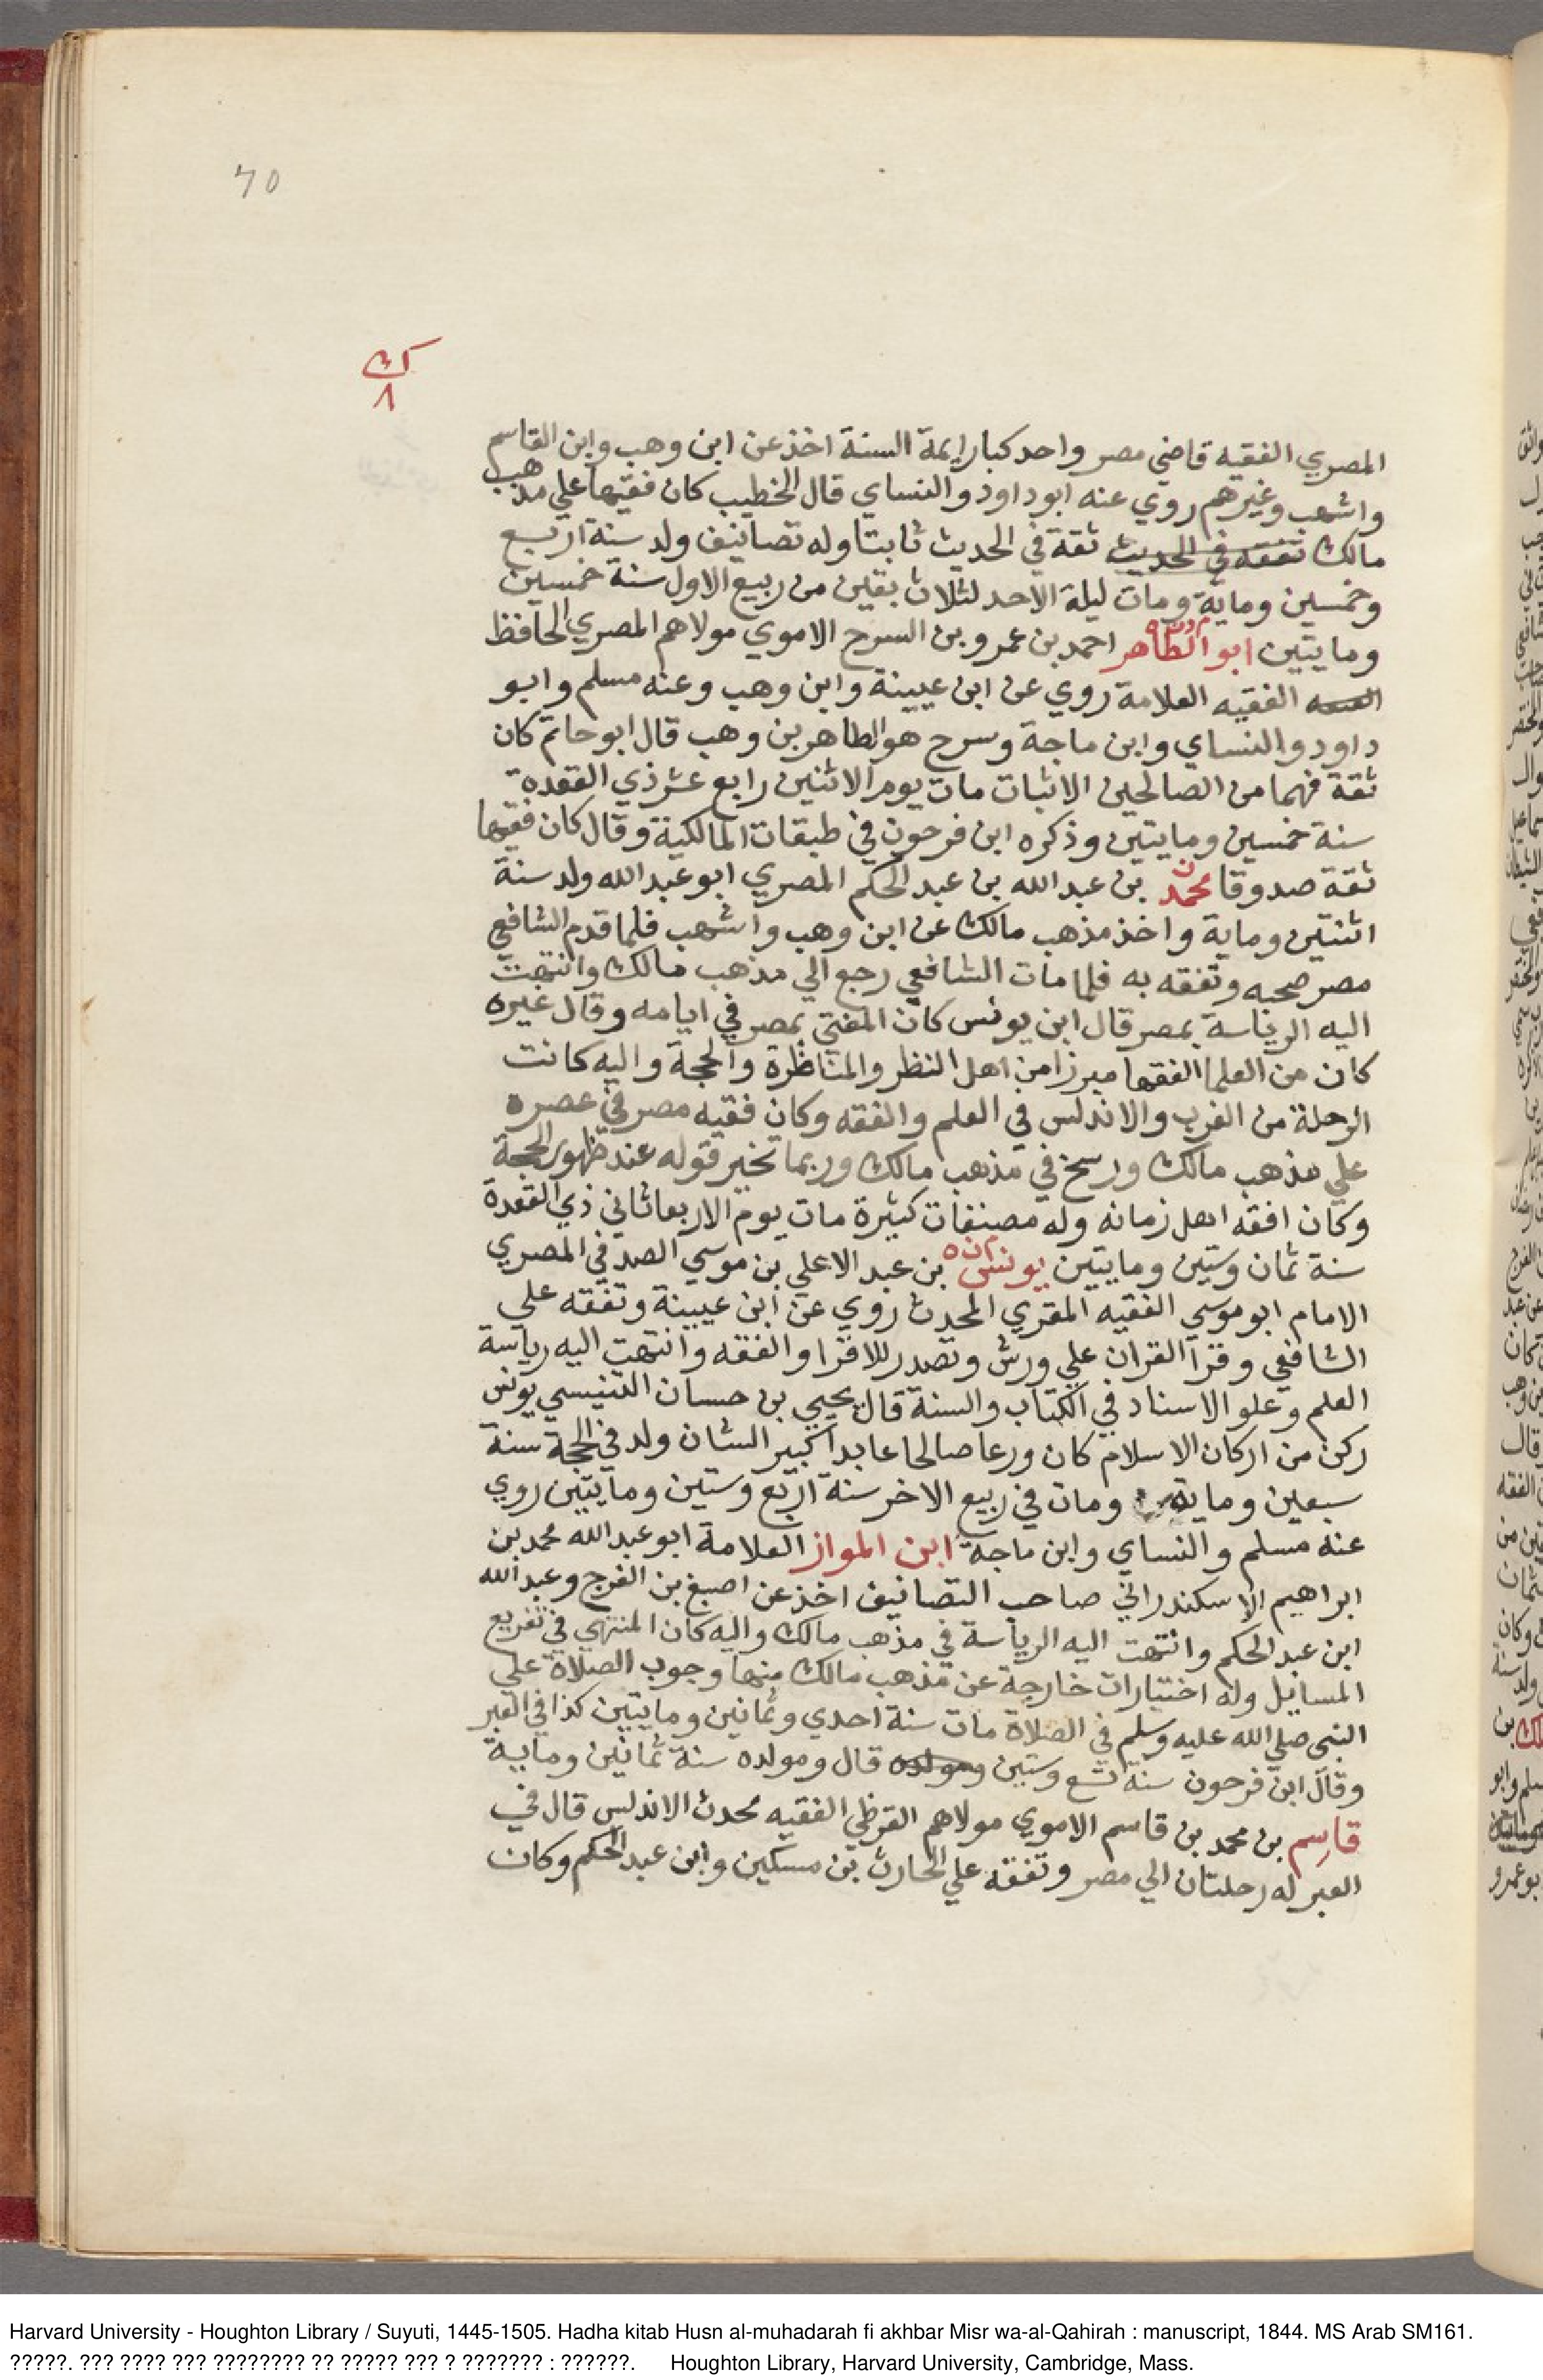 70
ك
٨
المصري الفقيه قاضي مصر واحد كبار ايمة السنة اخذ عن ابن وهب وابن القاسم
واشهب وغيرهم روي عنه ابو داود والنساي قال الخطيب كان فقيها علي مذهب
مالك تفقه في الحديث ثقة في الحديث ثابتا وله تصانيف ولد سنة اربع
وخمسين وماية ومات ليلة الاحد لثلاث بقين من ربيع الاول سنة خمسين
ومايتين ابو الطاهر احمد بن عمرو بن السرح الاموي مولاهم المصري الحافظ
الفقيه العلامة روي عن ابن عيينة وابن وهب وعنه مسلم وابو
داود والنساي وابن ماجة وسرح هو الطاهر بن وهب قال ابو حاتم كان
ثقة فهما من الصالحين الاثبات مات يوم الاثنين رابع عشر ذي القعدة
سنة خمسين ومايتين وذكره ابن فرحون في طبقات المالكية وقال كان فقيها
ثقة صدوقا محمد بن عبد الله بن عبد الحكم المصري ابو عبد الله ولد سنة
اثنتين وماية واخذ مذهب مالك عن ابن وهب واشهب فلما قدم الشافعي
مصر صحبه وتفقه به فلما مات الشافعي رجع الي مذهب مالك وانتهت
اليه الرياسة بمصر قال ابن يونس كان المفتي بمصر في ايامه وقال غيره
كان من العلما الفقها مبرزا من اهل النظر والمناظرة والحجة واليه كانت
الرحلة من الغرب والاندلس في العلم والفقه وكان فقيه مصر في عصره
علي مذهب مالك ورسخ في مذهب مالك وربما تخير قوله عند ظهور الحجة
وكان افقه اهل زمانه وله مصنفات كثيرة مات يوم الاربعا ثاني ذي القعدة
سنة ثمان وستين ومايتين يونس بن عبد الاعلي بن موسي الصدفي المصري
الامام ابو موسي الفقيه المقري المحدث روي عن ابن عيينة وتفقه علي
الشافعي وقرا القران علي ورش وتصدر للاقرا والفقه وانتهت اليه رياسة
العلم وعلو الاسناد في الكتاب والسنة قال يحيي بن حسان التنيسي يونس
ركن من اركان الاسلام كان ورعا صالحا عابدا كبير الشان ولد في الحجة سنة
سبعين وماية ومات في ربيع الاخر سنة اربع وستين ومايتين روي
عنه مسلم والنساي وابن ماجة ابن المواز العلامة ابو عبد الله محمد بن
ابراهيم الاسكندراني صاحب التصانيف اخذ عن اصبغ بن الفرج وعبد الله
ابن عبد الحكم وانتهت اليه الرياسة في مذهب مالك واليه كان المنتهي في تفريع
المسايل وله اختيارات خارجة عن مذهب مالك منها وجوب الصلاة علي
النبي صلي الله عليه وسلم في الصلاة مات سنة احدي وثمانين ومايتين كذا في العبر
وقال ابن فرحون سنة تسع وستين ومولده قال ومولده سنة ثمانين وماية
قاسم بن محمد بن قاسم الاموي مولاهم القرظي الفقيه محدث الاندلس قال في
العبر له رحلتان الي مصر وتفقه علي الحارث بن مسكين وابن عبد الحكم وكان
Harvard University - Houghton Library / Suyuti, 1445-1505. Hadha kitab Husn al-muhadarah fi akhbar Misr wa-al-Qahirah : manuscript, 1844. MS Arab SM161.
?????. ??? ???? ??? ???????? ?? ????? ??? ? ??????? : ??????. Houghton Library, Harvard University, Cambridge, Mass.